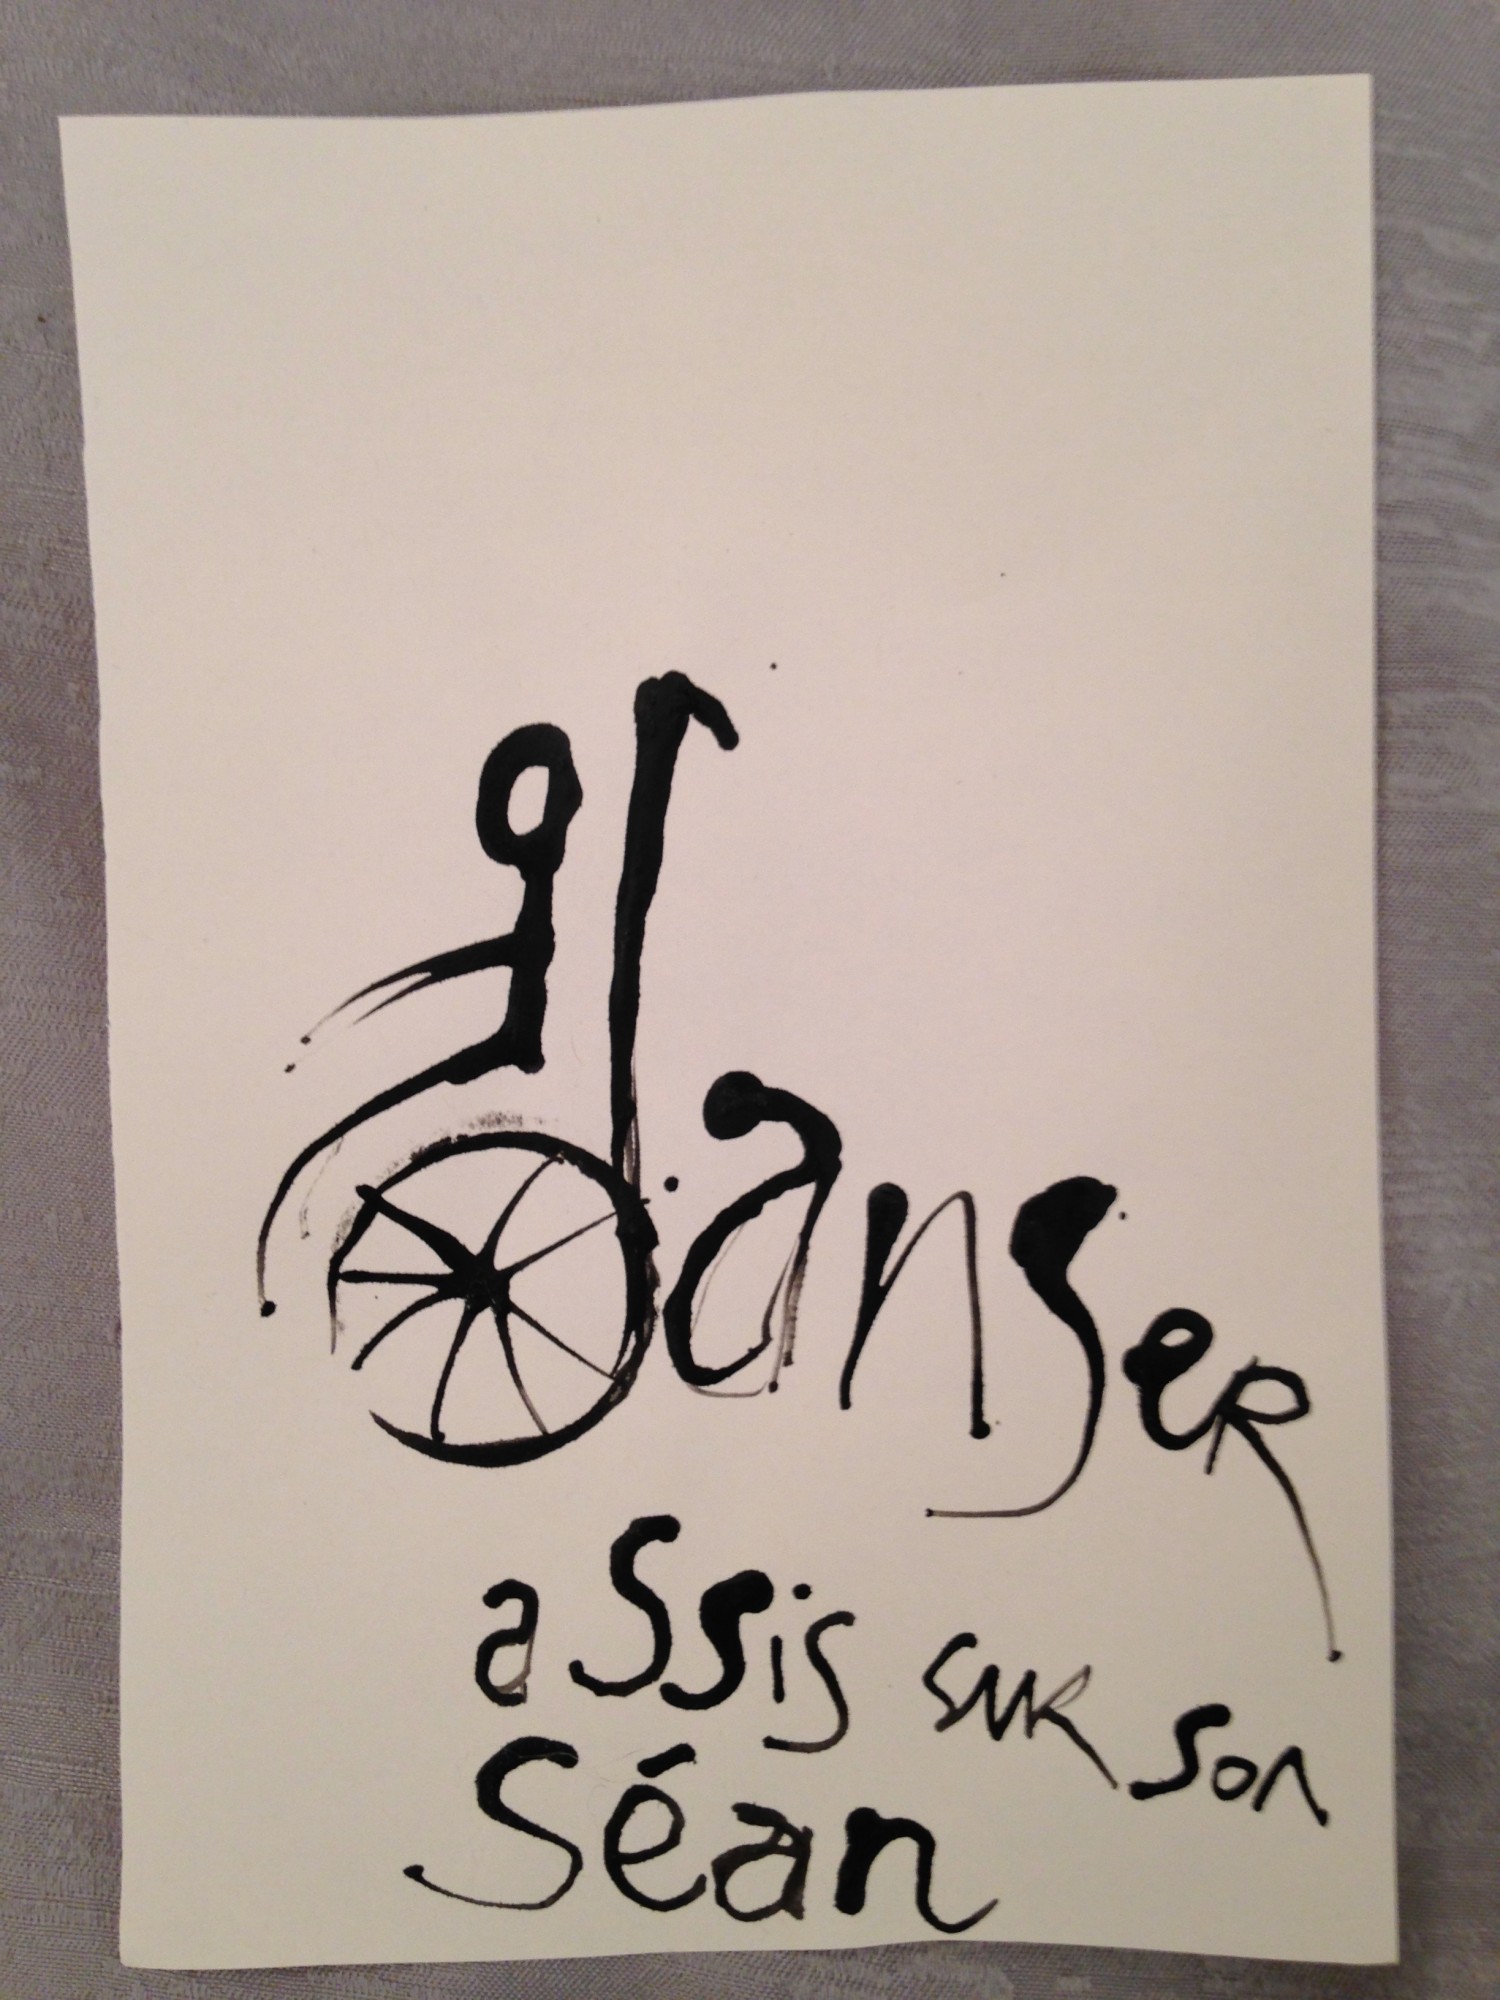 danser
assis sur son
séan